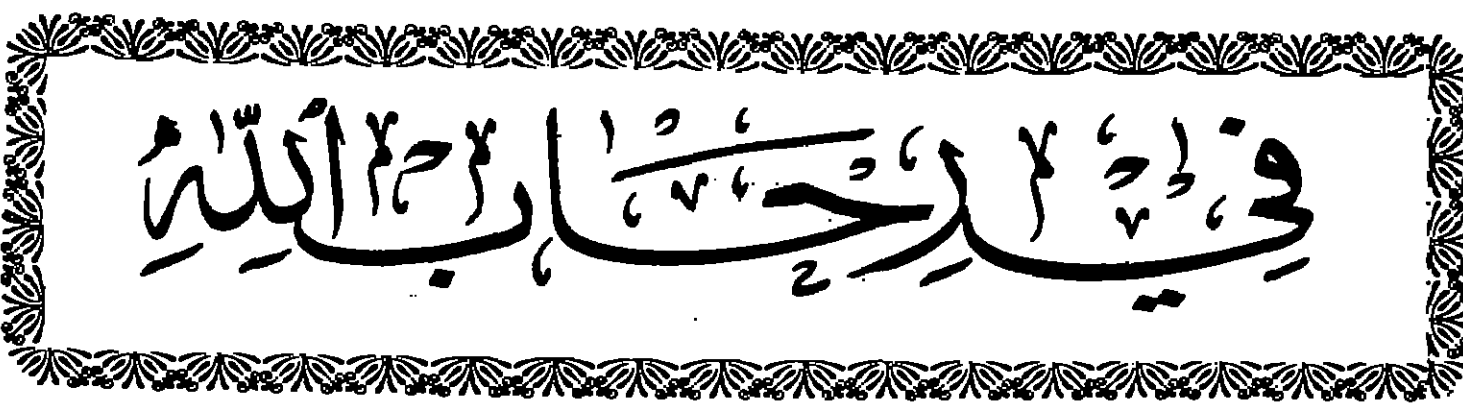 في رحاب الله